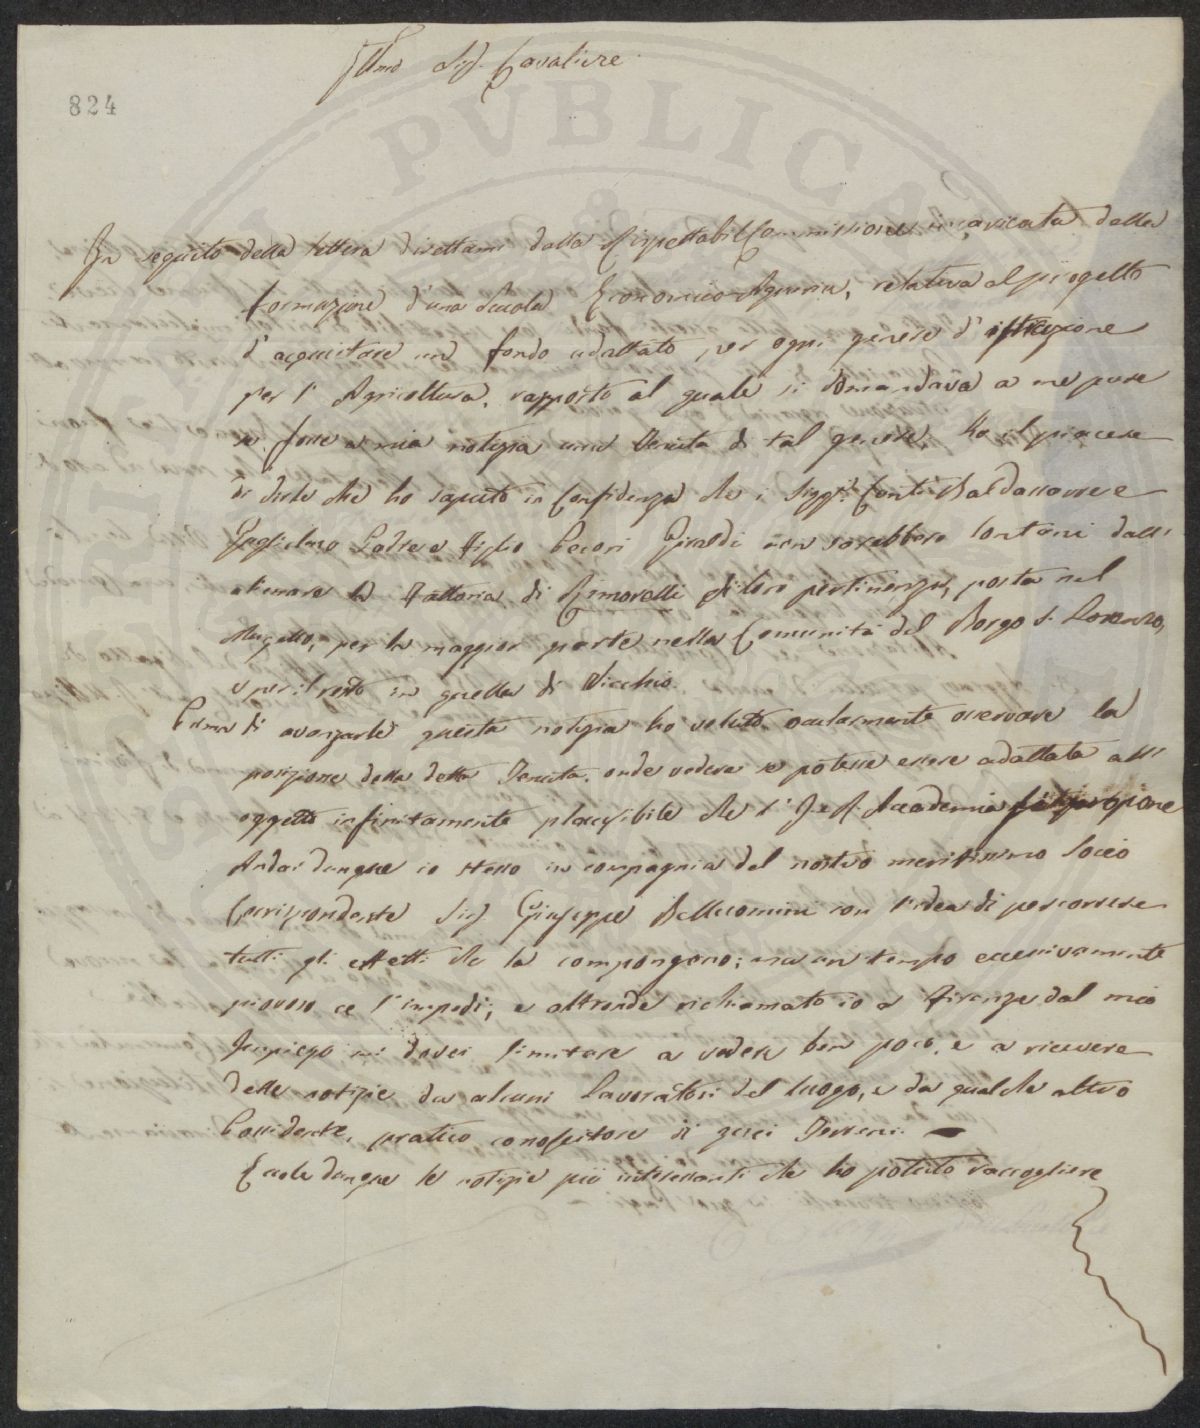 Illmo Sig. Cavaliere
824
In seguito della lettera direttami dalla Rispettabil Commissione incaricata della
formazione d'una Scuola Economico-Agraria, relativa al progetto
d'acquistare un fondo adattato per ogni genere d'istruzione
per l'Agricoltura, rapporto al quale si domandava a me pure
se fosse a mia notizia una Tenuta di tal genere, ho il piacere
di dirle che ho saputo in confidenza che i Siggri Conti Baldassarre e
Guglielmo Padre e Figlio Pecori Giraldi non sarebbero lontani dall'
alienare la Fattoria di Rimorelli di loro pertinenza, posta nel
Mugello, per la maggior parte nella Comunità del Borgo S. Lorenzo,
e per il resto in quella di Vicchio.
Prima di avanzarle questa notizia ho voluto oculatamente osservare la
posizione della detta Tenuta, onde vedere se potesse essere adattata all'
oggetto infinitamente plausibile che l'I. e R. Accademia si propone
Andai dunque io stesso in compagnia del nostro meritissimo Socio
Corrispondente Sig. Giuseppe Bellucomini con l'idea di percorrere
tutti gli effetti che la compongono; ma un tempo eccessivamente
piovoso ce l'impedì; e altronde richiamato io a Firenze dal mio
Impiego mi dovei limitare a vedere ben poco, e a ricevere
delle notizie da alcuni Lavoratori del luogo, e da qualche altro
Possidente, pratico conoscitore di quei Terreni.
Eccole dunque le notizie più interessanti che ho potuto raccogliere